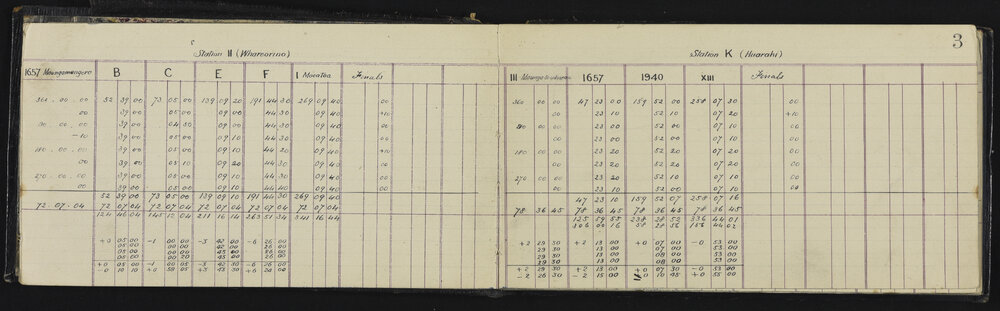 3
Station II (Whareorino)
1657 Maungamangero B C E F I Moeatoa Finals
360 . 00 . 00 52 39 00 73 05 00 139 09 20 191 44 30 269 09 40 00
00 39 00 05 00 09 00 44 30 09 40 +10
90 . 00 . 00 39 00 04 50 09 00 44 30 09 40 00
-10 39 00 05 00 09 10 44 30 09 40 00
180 . 00 . 00 39 00 05 00 09 10 44 20 09 40 +10
00 39 00 05 10 09 20 44 30 09 40 00
270 . 00 . 00 39 00 05 00 09 10 44 30 09 40 00
00 39 00 05 00 09 10 44 40 09 40 00
52 39 00 73 05 00 139 09 10 191 44 30 269 09 40
72 . 07 . 04 72 07 04 72 07 04 72 07 04 72 07 04 72 07 04
124 46 04 145 12 04 211 16 14 263 51 34 341 16 44
+0 05 00 -1 00 00 -3 42 00 -6 26 00
05 00 00 00 42 00 26 00
05 00 00 00 26 00
05 00 26 00
+0 05 00 -1 00 05 -3 42 30 -6 26 00
-0 10 10 +0 58 05 +3 43 30 +6 24 00
Station K (Huarahi)
III 1657 1940 XIII Finals
360 00 00 47 23 00 159 52 00 258 07 30 00
00 23 10 52 10 07 20 +10
90 00 00 23 00 52 00 07 10 00
00 23 00 52 00 07 10 00
180 00 00 23 20 52 20 07 20 00
00 23 20 52 20 07 20 00
270 00 00 23 20 52 10 07 10 00
00 23 10 52 00 07 10 00
47 23 10 159 52 07 258 07 16
78 36 45 78 36 45 78 36 45 78 36 45
125 59 55 238 28 52 336 44 01
306 00 16 156 44 02
+2 29 30 +2 13 00 +0 07 00 -0 53 00
29 30 13 00 07 00 53 00
29 30 13 00 08 00 53 00
29 30 13 00 08 00 53 00
+2 29 30 +2 13 00 +0 07 30 -0 53 00
-2 26 30 -2 15 00 0 10 45 +0 55 00